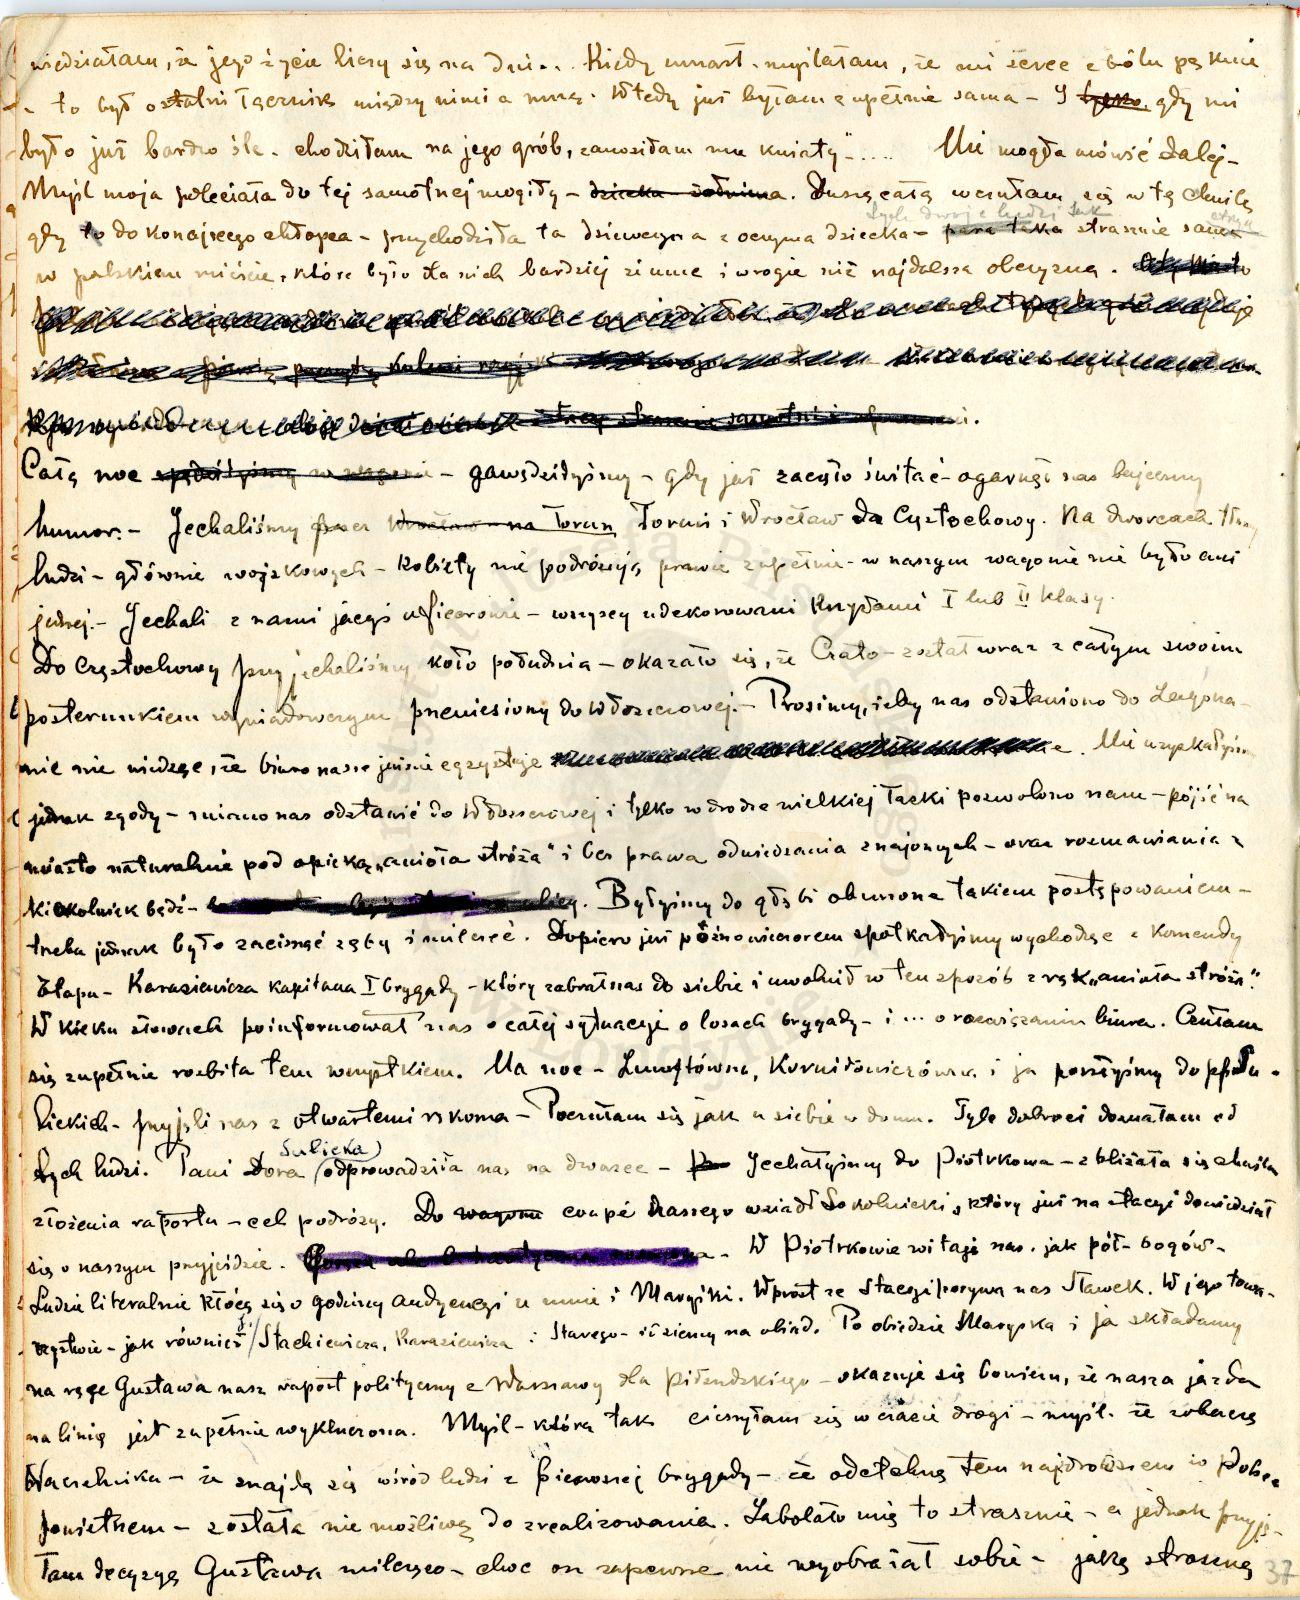 wiedziałam, że jego życie liczy się na dni... Kiedy umarł - myślałam, że mi serce z bólu pęknie
- to był ostatni łącznik między nimi a mną. Wtedy już byłam zupełnie sama - I tylko gdy mi
było już bardzo źle - chodziłam na jego grób, zanosiłam mu kwiaty"-.... Nie mogła mówić dalej -
Myśl moja poleciała do tej samotnej mogiły - dziecka żołnierza. Duszą całą wczułam się w tą chwilę
tych dwoje ludzi tak
gdy to do konającego chłopca - przychodziła ta dziewczyna z oczyma dziecka - para taka strasznie sama
w polskiem mieście, które było dla nich bardziej zimne i wrogie niż najdalsza obczyzna.
Całą noc spędziłyśmy w wagonie - gawędziłyśmy - gdy już zaczęło świtać - ogarnął nas bajeczny
humor. - Jechaliśmy przez Wrocław - na Toruń Toruń i Wrocław do Częstochowy. Na dworcach tłumy
ludzi - głównie wojskowych - kobiety nie podróżują prawie zupełnie - w naszym wagonie nie było ani
jednej. - Jechali z nami jacyś oficerowie - wszyscy udekorowani Krzyżami I lub II klasy.
Do Częstochowy przyjechaliśmy koło południa - okazało się, że Crato - został wraz z całym swoim
posterunkiem wywiadowczym przeniesiony do Włoszczowej. - Prosimy, żeby nas odstawiono do Legjona -
nic nie wiedząc, że biuro nasze już nie egzystuje. Nie uzyskałyśmy
jednak zgody - miano nas odstawić do Włoszczowej i tylko w drodze wielkiej łaski pozwolono nam - pójść na
miasto naturalnie pod opieką „anioła stróża" i bez prawa odwiedzania znajomych - oraz rozmawiania z
kimkolwiek bądź - . Byłyśmy do głębi oburzone takiem postępowaniem -
trzeba jednak było zacisnąć zęby i milczeć. Dopiero już późno wieczorem spotkałyśmy wychodząc z Komendy
Etapu - Karasiewicza kapitana I brygady - który zabrał nas do siebie i uwolnił w ten sposób z rąk „anioła stróża".
W kilku słowach poinformował nas o całej sytuacyi o losach brygady - i ... o rozwiązaniu biura. Czułam
się zupełnie rozbita tem wszystkiem. Na noc - , Korniłowiczówna i ja poszłyśmy do
lickich - przyjęli nas z otwartemi rękoma - Poczułam się jak u siebie w domu. Tyle dobroci doznałam od
Sulicka)
tych ludzi. Pani Dora (odprowadziła nas na dworzec - Jechałyśmy do Piotrkowa - zbliżała się chwila
złożenia raportu - cel podróży. Do wagonu coupé naszego wsiadł Sokolnicki, który już na stacyi dowiedział
się o naszym przyjeździe. - W Piotrkowie witają nas. jak pół-bogów -
Ludzie literalnie kłócą się o godziny audyencyi u mnie i Maryśki. Wprost ze Stacyi porywa nas Sławek. W jego towa-
rzystwie - jak również Stachiewicza, Karasiewicza i Starego - idziemy na obiad. Po obiedzie Marypka i ja składamy
na ręce Gustawa nasz raport polityczny z Warszawy dla Piłsudskiego - okazuje się bowiem, że nasza jazda
na linię jest zupełnie wykluczona. Myśl - którą tak cieszyłam się w czasie drogi - myśl. że zobaczę
Naczelnika - że znajdę się wśród ludzi z Pierwszej brygady - że odetchnę tem najdroższem w Polsce
powietrzem - została nie możliwą do zrealizowania. Zabolało mię to strasznie - a jednak przyję-
łam decyzyę Gustawa milcząco - choć on zapewne nie wyobrażał sobie - jaką straszną
37